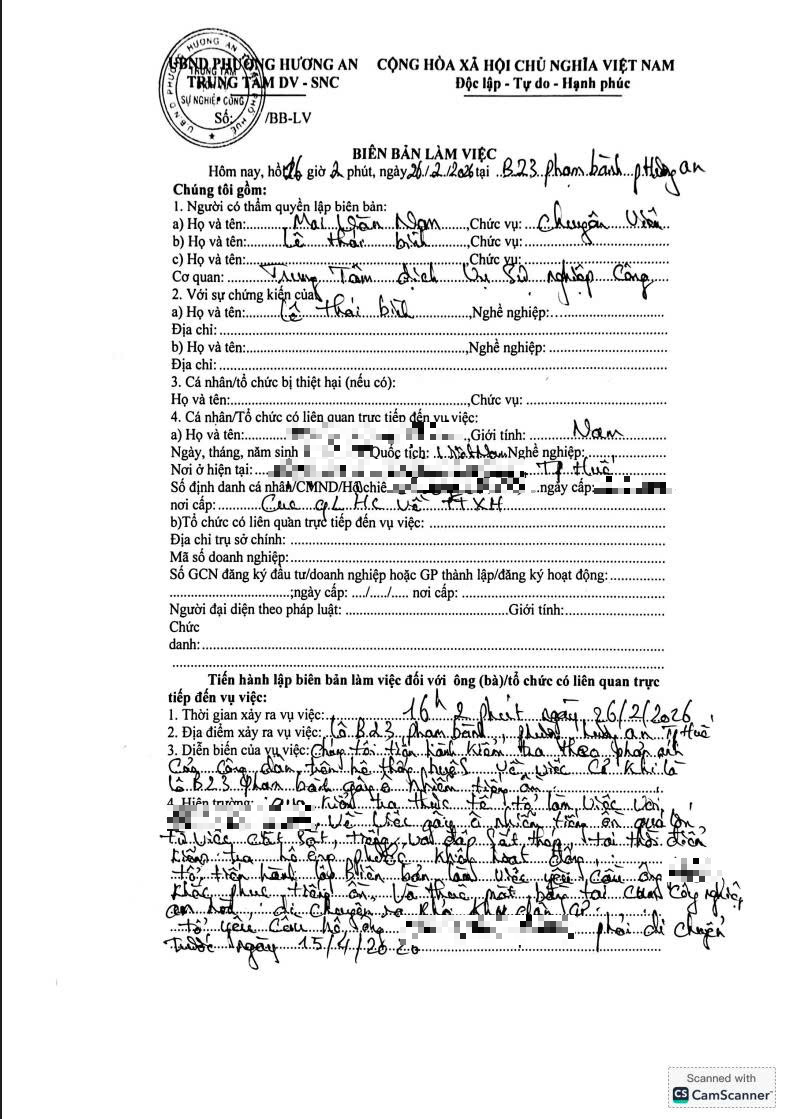 UBND PHƯỜNG HƯƠNG AN CỘNG HÒA XÃ HỘI CHỦ NGHĨA VIỆT NAM
TRUNG TÂM DV - SNC Độc lập - Tự do - Hạnh phúc
TRUNG TÂM
SỰ NGHIỆP CÔNG
Số: /BB-LV
BIÊN BẢN LÀM VIỆC
Hôm nay, hồi 16 giờ 2 phút, ngày 26/2/2026 tại B23 Phạm bành p Hương an
Chúng tôi gồm:
1. Người có thẩm quyền lập biên bản:
a) Họ và tên: Mai Nam, Chức vụ: Chuyên Viên
b) Họ và tên: Lê thái bình, Chức vụ:
c) Họ và tên:, Chức vụ:
Cơ quan: Trung Tâm dịch Vụ Sự nghiệp Công
2. Với sự chứng kiến của
a) Họ và tên: Lê thái bình, Nghề nghiệp:
Địa chỉ:
b) Họ và tên:, Nghề nghiệp:
Địa chỉ:
3. Cá nhân/tổ chức bị thiệt hại (nếu có):
Họ và tên:, Chức vụ:
4. Cá nhân/Tổ chức có liên quan trực tiếp đến vụ việc:
a) Họ và tên:, Giới tính: Nam
Ngày, tháng, năm sinh Quốc tịch: Việt Nam Nghề nghiệp:
Nơi ở hiện tại: Tp Huế
Số định danh cá nhân/CMND/Hộ chiếu ngày cấp:
nơi cấp: Cục QL HC Về TTXH
b)Tổ chức có liên quan trực tiếp đến vụ việc:
Địa chỉ trụ sở chính:
Mã số doanh nghiệp:
Số GCN đăng ký đầu tư/doanh nghiệp hoặc GP thành lập/đăng ký hoạt động:
;ngày cấp: ..../...../..... nơi cấp:
Người đại diện theo pháp luật: Giới tính:
Chức
danh:
Tiến hành lập biên bản làm việc đối với ông (bà)/tổ chức có liên quan trực
tiếp đến vụ việc:
1. Thời gian xảy ra vụ việc: 16h 2 phút ngày 26/2/2026
2. Địa điểm xảy ra vụ việc: Lô B23 Phạm bành, phường Hương an Tp Huế
3. Diễn biến của vụ việc: Chúng tôi tiến hành kiểm tra theo phản ánh
Của Công dân trên hệ thống Về việc Cơ khí là
lô B23 Phạm bành gây ô nhiễm tiếng ồn
4. Hiện trường: qua kiểm tra thực tế tổ làm việc với
Về việc gây ô nhiễm tiếng ồn quá lớn
từ việc cắt sắt, đập sắt thép, tại thời điểm
kiểm tra hộ ông không hoạt động
tổ tiến hành lập biên bản làm việc yêu cầu ông
khắc phục tiếng ồn, Và thuê mặt bằng tại Cụm Công nghiệp
an hòa di chuyển ra khỏi khu dân cư
tổ yêu cầu hộ ông phải di chuyển
trước ngày 15/4/2020
Scanned with
CS CamScanner